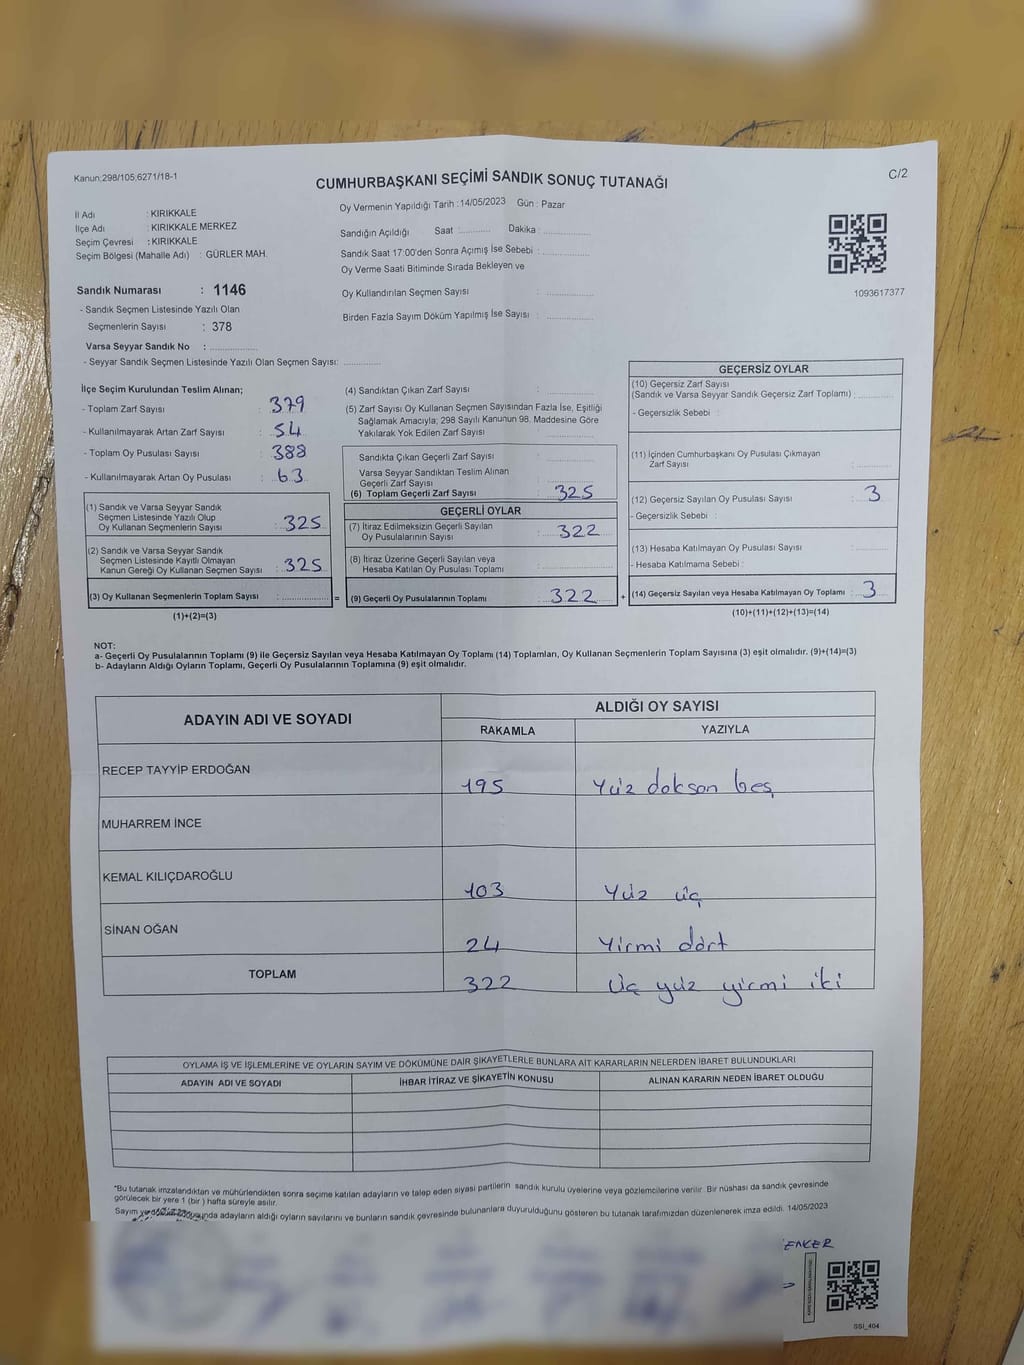 Kanun;298/105;6271/18-1
C/2
CUMHURBAŞKANI SEÇİMİ SANDIK SONUÇ TUTANAĞI
Oy Vermenin Yapıldığı Tarih :14/05/2023 Gün : Pazar
İl Adı : KIRIKKALE
İlçe Adı : KIRIKKALE MERKEZ
Seçim Çevresi : KIRIKKALE
Seçim Bölgesi (Mahalle Adı) : GÜRLER MAH.
Sandık Numarası : 1146
- Sandık Seçmen Listesinde Yazılı Olan
Seçmenlerin Sayısı : 378
Varsa Seyyar Sandık No :
- Seyyar Sandık Seçmen Listesinde Yazılı Olan Seçmen Sayısı:
Sandığın Açıldığı Saat : Dakika :
Sandık Saat 17:00'den Sonra Açımış İse Sebebi :
Oy Verme Saati Bitiminde Sırada Bekleyen ve
Oy Kullandırılan Seçmen Sayısı :
Birden Fazla Sayım Döküm Yapılmış İse Sayısı :
1093617377
İlçe Seçim Kurulundan Teslim Alınan;
- Toplam Zarf Sayısı : 379
- Kullanılmayarak Artan Zarf Sayısı : 54
- Toplam Oy Pusulası Sayısı : 388
- Kullanılmayarak Artan Oy Pusulası : 63
(1) Sandık ve Varsa Seyyar Sandık
Seçmen Listesinde Yazılı Olup
Oy Kullanan Seçmenlerin Sayısı : 325
(2) Sandık ve Varsa Seyyar Sandık
Seçmen Listesinde Kayıtlı Olmayan
Kanun Gereği Oy Kullanan Seçmen Sayısı : 325
(3) Oy Kullanan Seçmenlerin Toplam Sayısı :
(1)+(2)=(3)
=
(4) Sandıktan Çıkan Zarf Sayısı :
(5) Zarf Sayısı Oy Kullanan Seçmen Sayısından Fazla İse, Eşitliği
Sağlamak Amacıyla; 298 Sayılı Kanunun 98. Maddesine Göre
Yakılarak Yok Edilen Zarf Sayısı :
Sandıkta Çıkan Geçerli Zarf Sayısı :
Varsa Seyyar Sandıktan Teslim Alınan
Geçerli Zarf Sayısı :
(6) Toplam Geçerli Zarf Sayısı : 325
GEÇERLİ OYLAR
(7) İtiraz Edilmeksizin Geçerli Sayılan
Oy Pusulalarının Sayısı : 322
(8) İtiraz Üzerine Geçerli Sayılan veya
Hesaba Katılan Oy Pusulası Toplamı :
(9) Geçerli Oy Pusulalarının Toplamı : 322
+
GEÇERSİZ OYLAR
(10) Geçersiz Zarf Sayısı
(Sandık ve Varsa Seyyar Sandık Geçersiz Zarf Toplamı) :
- Geçersizlik Sebebi :
(11) İçinden Cumhurbaşkanı Oy Pusulası Çıkmayan
Zarf Sayısı :
(12) Geçersiz Sayılan Oy Pusulası Sayısı : 3
- Geçersizlik Sebebi :
(13) Hesaba Katılmayan Oy Pusulası Sayısı :
- Hesaba Katılmama Sebebi :
(14) Geçersiz Sayılan veya Hesaba Katılmayan Oy Toplamı : 3
(10)+(11)+(12)+(13)=(14)
NOT:
a- Geçerli Oy Pusulalarının Toplamı (9) ile Geçersiz Sayılan veya Hesaba Katılmayan Oy Toplamı (14) Toplamları, Oy Kullanan Seçmenlerin Toplam Sayısına (3) eşit olmalıdır. (9)+(14)=(3)
b- Adayların Aldığı Oyların Toplamı, Geçerli Oy Pusulalarının Toplamına (9) eşit olmalıdır.
ADAYIN ADI VE SOYADI ALDIĞI OY SAYISI
RAKAMLA YAZIYLA
RECEP TAYYİP ERDOĞAN 195 Yüz doksan beş
MUHARREM İNCE
KEMAL KILIÇDAROĞLU 103 Yüz üç
SİNAN OĞAN 24 Yirmi dört
TOPLAM 322 üç yüz yirmi iki
OYLAMA İŞ VE İŞLEMLERİNE VE OYLARIN SAYIM VE DÖKÜMÜNE DAİR ŞİKAYETLERLE BUNLARA AİT KARARLARIN NELERDEN İBARET BULUNDUKLARI
ADAYIN ADI VE SOYADI İHBAR İTİRAZ VE ŞİKAYETİN KONUSU ALINAN KARARIN NEDEN İBARET OLDUĞU
*Bu tutanak imzalandıktan ve mühürlendikten sonra seçime katılan adayların ve talep eden siyasi partilerin sandık kurulu üyelerine veya gözlemcilerine verilir. Bir nüshası da sandık çevresinde
görülecek bir yere 1 (bir ) hafta süreyle asılır.
Sayım ve adayların aldığı oyların sayılarını ve bunların sandık çevresinde bulunanlara duyurulduğunu gösteren bu tutanak tarafımızdan düzenlenerek imza edildi. 14/05/2023
SSI_404